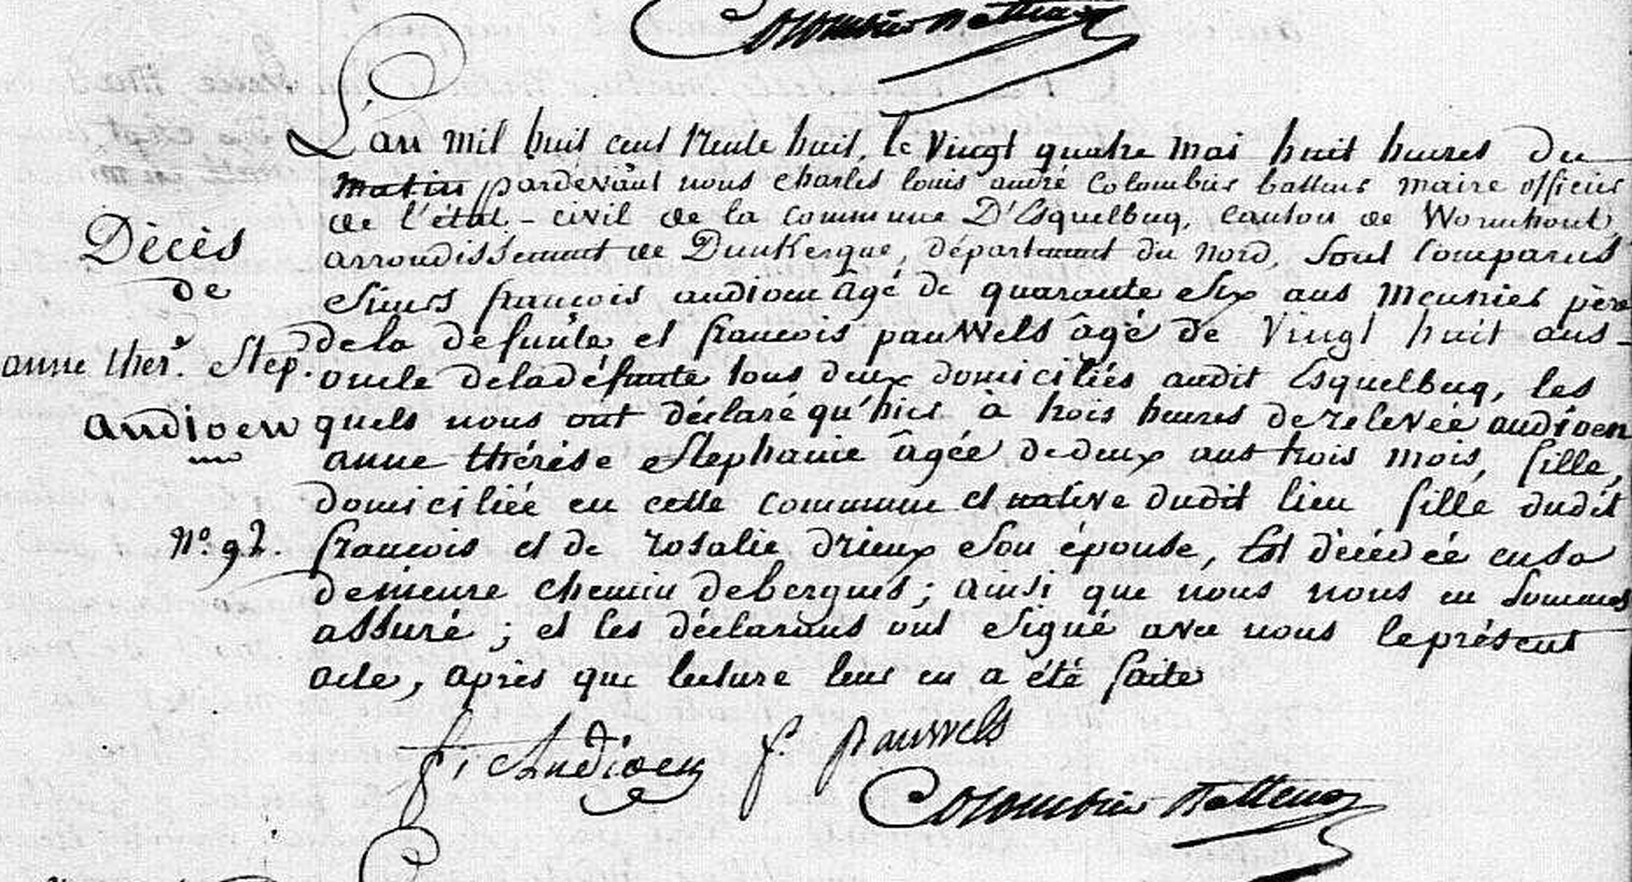 Colombier Batteur
L'an mil huit cent trente huit, le vingt quatre mai huit heures du
matin pardevant nous charles louis andré Colombier batteur maire officier
de l'état-civil de la commune D'Esquelbecq, canton de Wormhout,
arrondissement de Dunkerque, département du Nord, sont comparus
Sieurs françois audioen âgé de quarante Six ans Meunier père
de la defunte et françois pauwels âgé de Vingt huit ans -
oncle de la défunte tous deux domiciliés audit Esquelbecq, les
quels nous ont déclaré qu'hier à trois heures de relevée audioen
anne thérèse Stephanie âgée de deux ans trois mois, fille,
domiciliée en cette commune et native dudit lieu fille dudit
françois et de rosalie drieux Son épouse, Est décédée en sa
demeure chemin de bergues ; ainsi que nous nous en sommes
assuré ; et les déclarans ont Signé avec nous le présent
acte, après que lecture leur en a été faite
Décès
de
anne ther. Step.
audioen
N° 92.
f. Audioen f. pauwels
Colombier Batteur